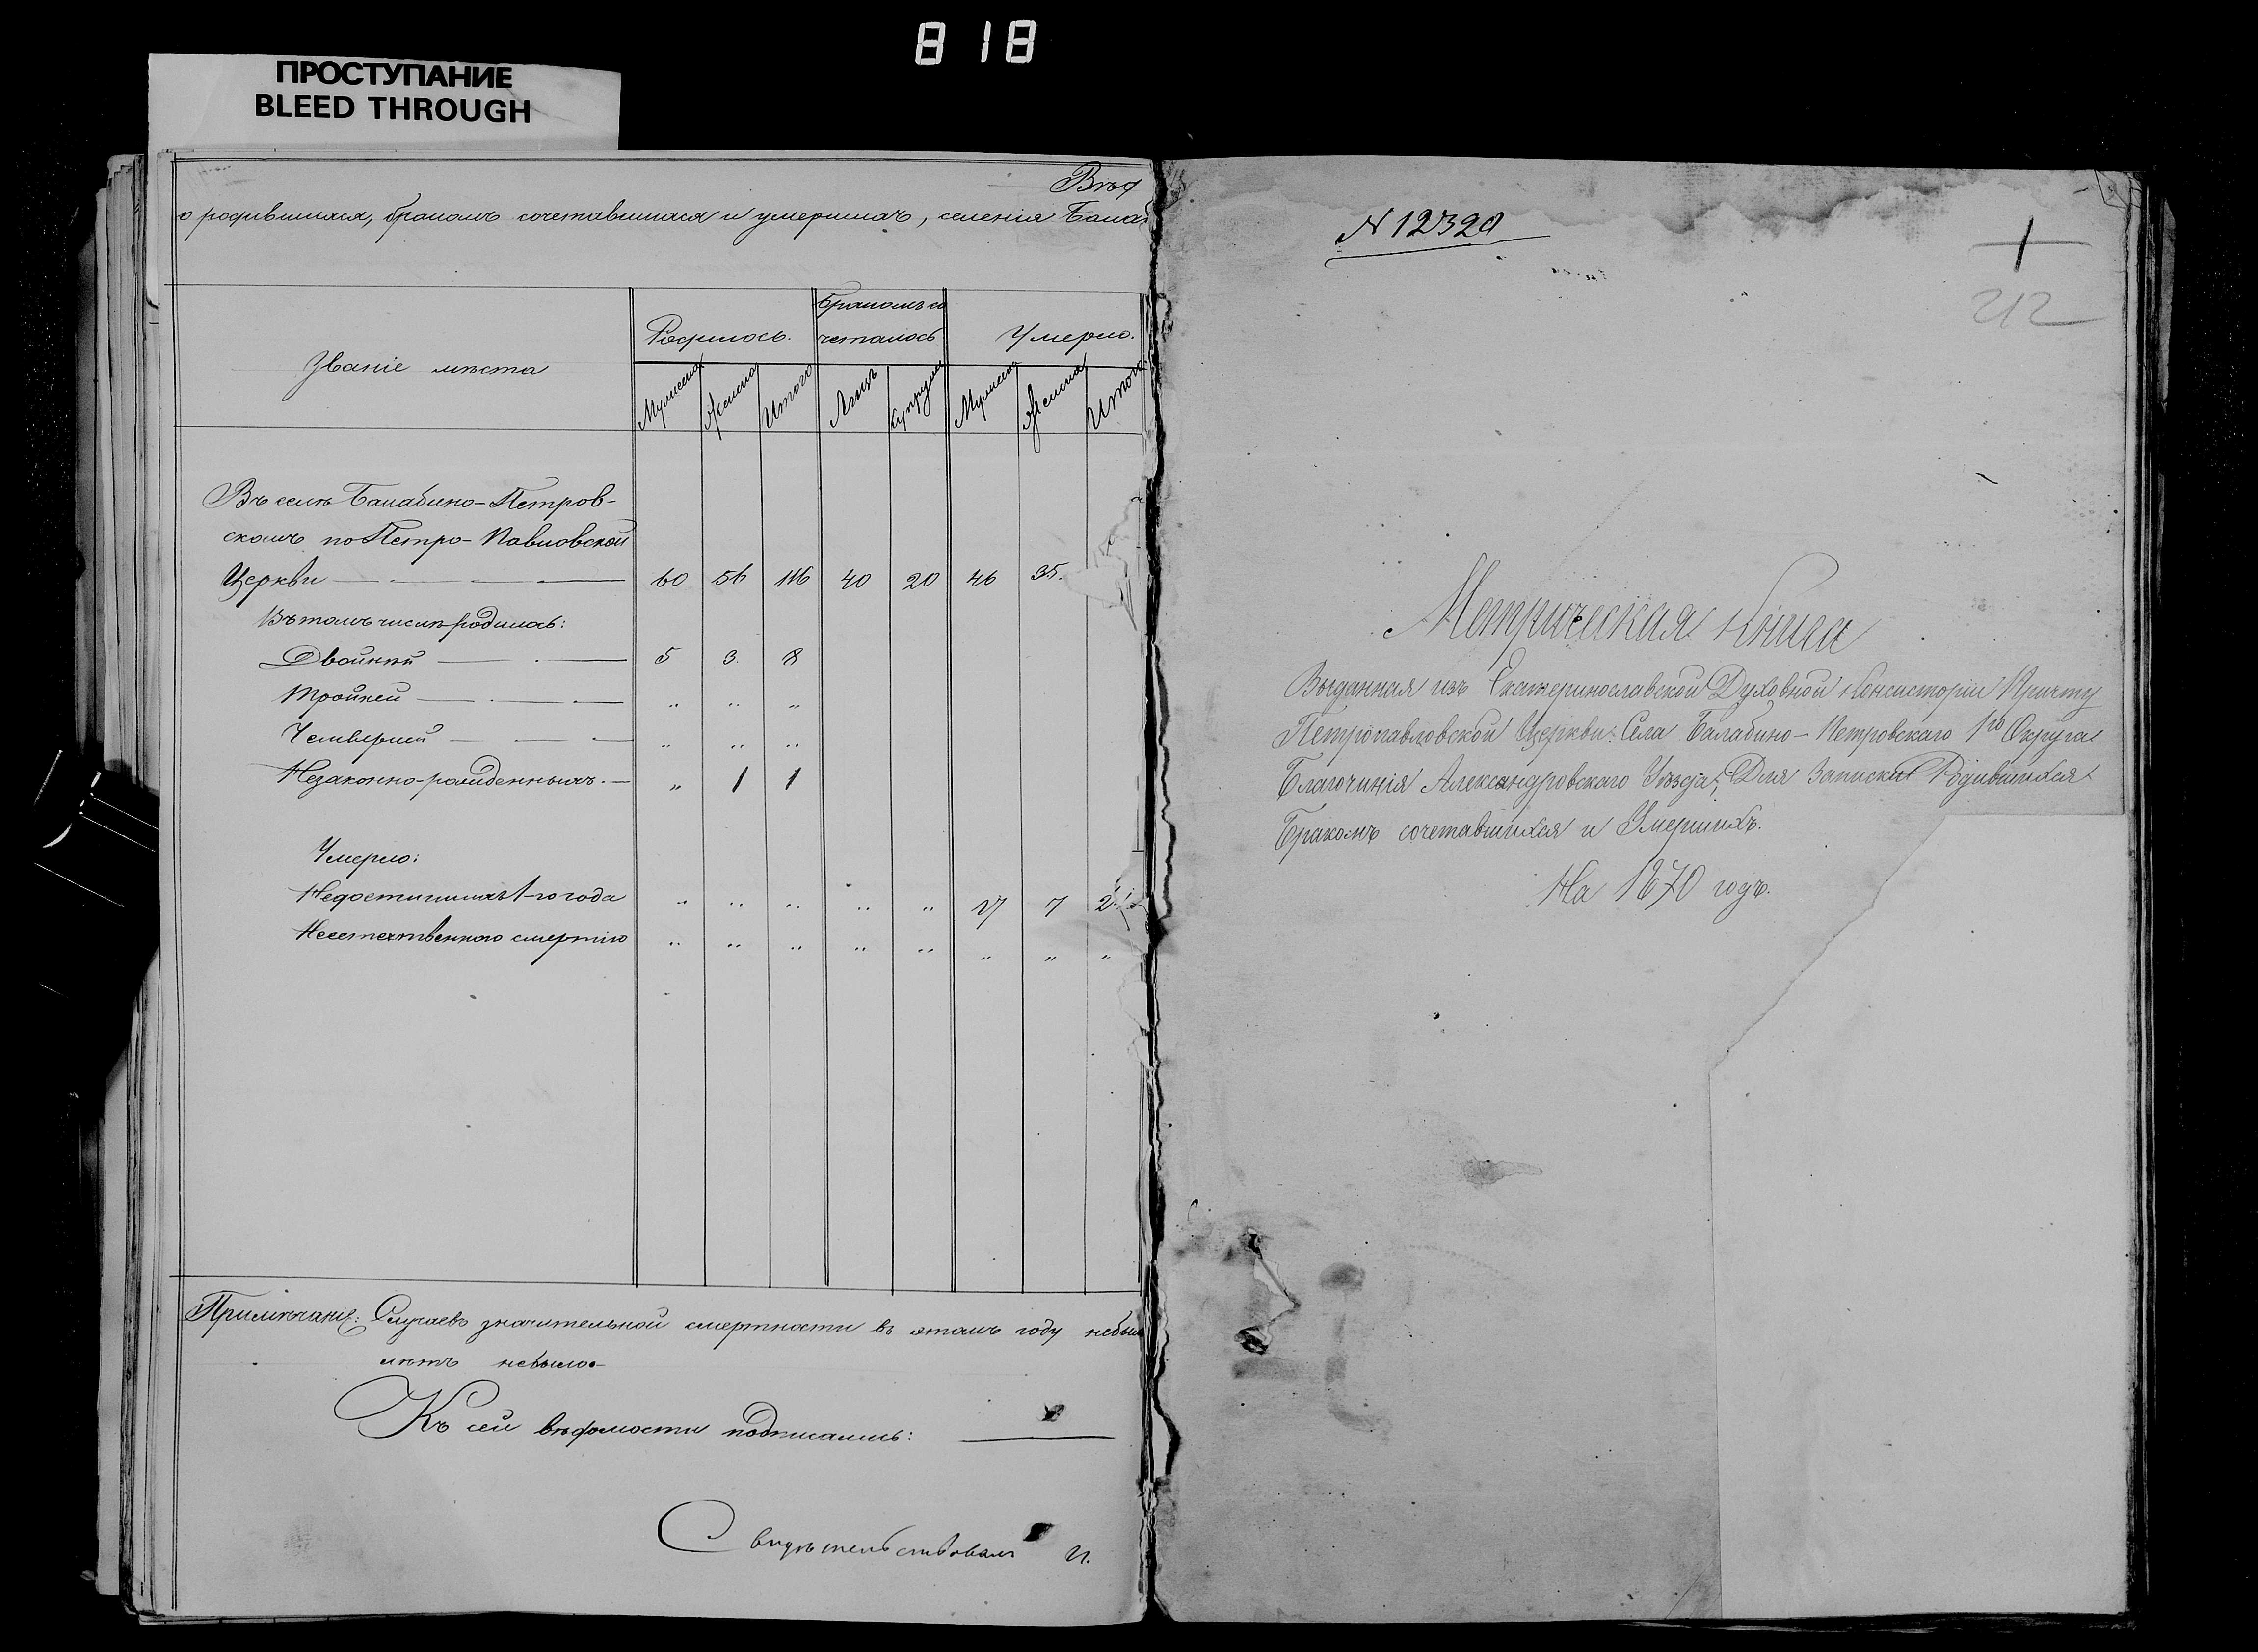 818
ПРОСТУПАНИЕ
BLEED THROUGH
Вѣд
о родившихся, бракомъ сочетавшихся и умершихъ, селенія Балаб
Званіе мѣста
Родилось.
Бракомъ со
четалось
Умерло.
Мужеска
Женска
Итого
Лицъ
Супруж
Мужеска
Женска
Итого
Въ селѣ Балабино-Петров-
скомъ по Петро-Павловской
Церкви 60 56 116 40 20 46 35.
Въ томъ числѣ родилось:
Двойней 5 3. 8
Тройней „ „ „
Четверней „ „ „
Незаконно-рожденныхъ. „ 1 1
Умерло:
Недостигшихъ 1-го года „ „ „ „ „ 17 7 2
Неестественною смертію „ „ „ „ „ „ „ „
Примѣчаніе: Случаевъ значительной смертности въ этомъ году небыло
лѣтъ небыло
Къ сей вѣдомости подписались:
Свидѣтельствовалъ И.
N 12320
1
212
Метрическая Книга
Выданная изъ Екатеринославской Духовной Консисторіи Причту
Петропавловской Церкви: Села Балабино-Петровскаго 1го Округа
Благочинія Александровскаго Уѣзда; Для Записки Родившихся
Бракомъ сочетавшихся и Умершихъ.
На 1870 годъ.